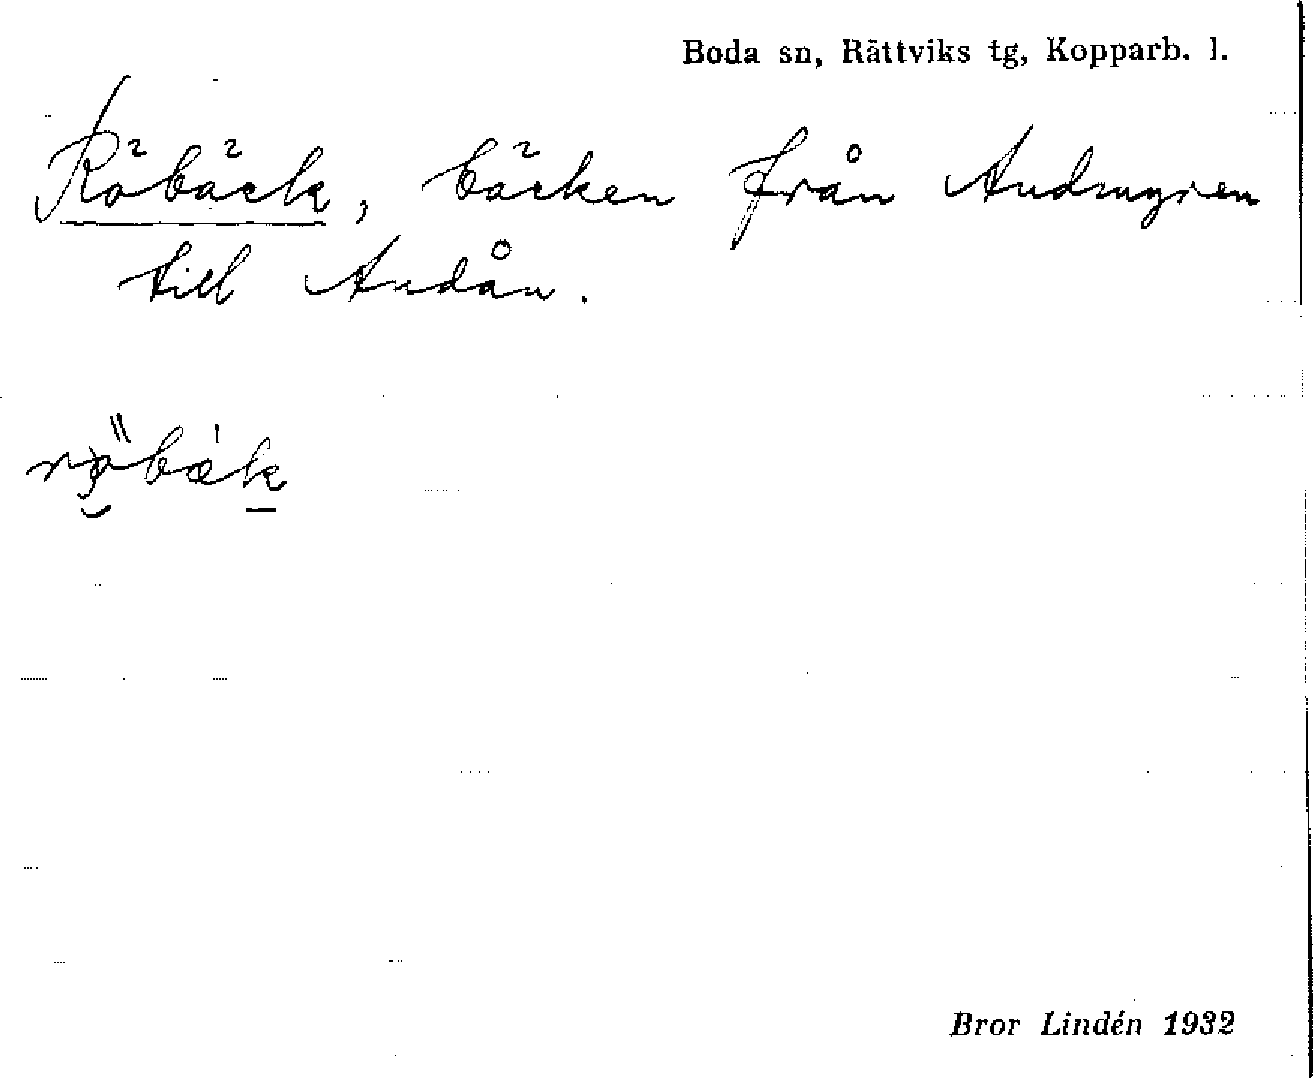 Boda sn, Rättviks tg, Kopparb. l.
Röbäck, bäcken från Andmyren
till Andån.
Bror Lindén 1932